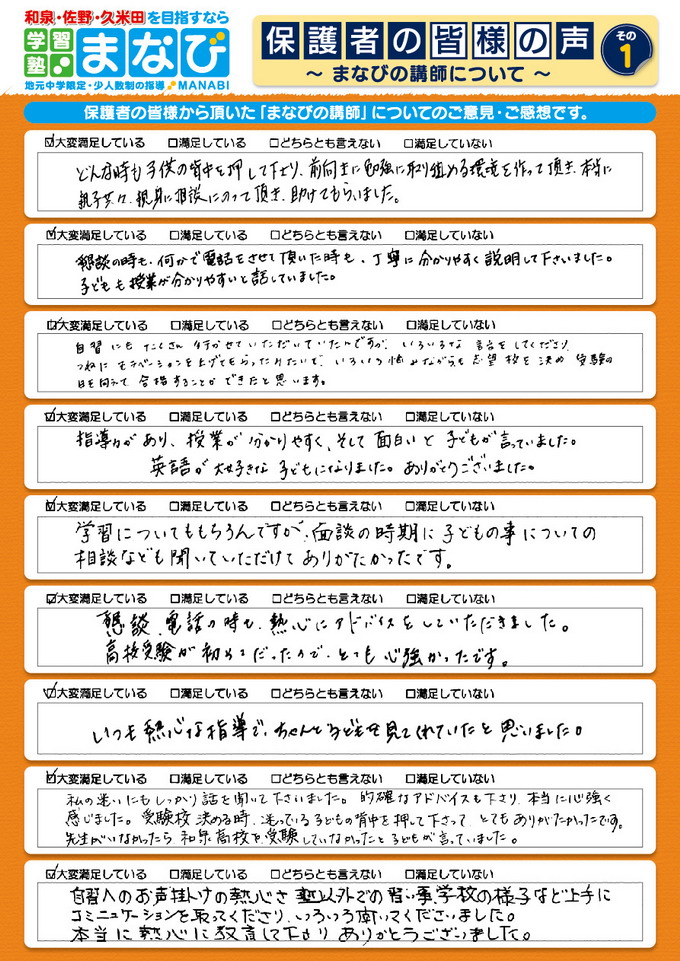 和泉・佐野・久米田を目指すなら
学習塾 まなび
地元中学限定・少人数制の指導 MANABI
保護者の皆様の声 その1
～ まなびの講師について ～
保護者の皆様から頂いた「まなびの講師」についてのご意見・ご感想です。
☑大変満足している □満足している □どちらとも言えない □満足していない
どんな時も子供の背中を押して下さり、前向きに勉強に取り組める環境を作って頂き、本当に
親子共々、親身に相談にのって頂き、助けてもらいました。
☑大変満足している □満足している □どちらとも言えない □満足していない
懇談の時も、何かで電話をさせて頂いた時も、丁寧に分かりやすく説明して下さいました。
子どもも授業が分かりやすいと話していました。
☑大変満足している □満足している □どちらとも言えない □満足していない
自習にもたくさん行かせていただいていたんですが、いろいろな声をしてくださり、
つねにモチベーションを上げてもらったみたいで、いろいろ悩みながらも志望校を決め 受験の
日を向えて合格することができたと思います。
☑大変満足している □満足している □どちらとも言えない □満足していない
指導力があり、授業が分かりやすく、そして面白いと子どもが言っていました。
英語が大好きな子どもになりました。ありがとうございました。
☑大変満足している □満足している □どちらとも言えない □満足していない
学習についてももちろんですが、面談の時期に子どもの事についての
相談なども聞いていただけてありがたかったです。
☑大変満足している □満足している □どちらとも言えない □満足していない
懇談、電話の時も、熱心にアドバイスをしていただきました。
高校受験が初めてだったので、とても心強かったです。
☑大変満足している □満足している □どちらとも言えない □満足していない
いつも熱心な指導で、ちゃんと子どもを見てくれていたと思いました。
☑大変満足している □満足している □どちらとも言えない □満足していない
私の迷いにもしっかり話を聞いて下さいました。的確なアドバイスも下さり、本当に心強く
感じました。受験校 決める時、迷っている子どもの背中を押して下さって、とてもありがたかったです。
先生がいなかったら、和泉高校を受験していなかったと子どもが言っていました。
☑大変満足している □満足している □どちらとも言えない □満足していない
自習へのお声掛けの熱心さ 塾以外での習い事、学校の様子など上手に
コミニュケーションを取ってくださり、いろいろ聞いてくださいました。
本当に熱心に教育して下さり ありがとうございました。